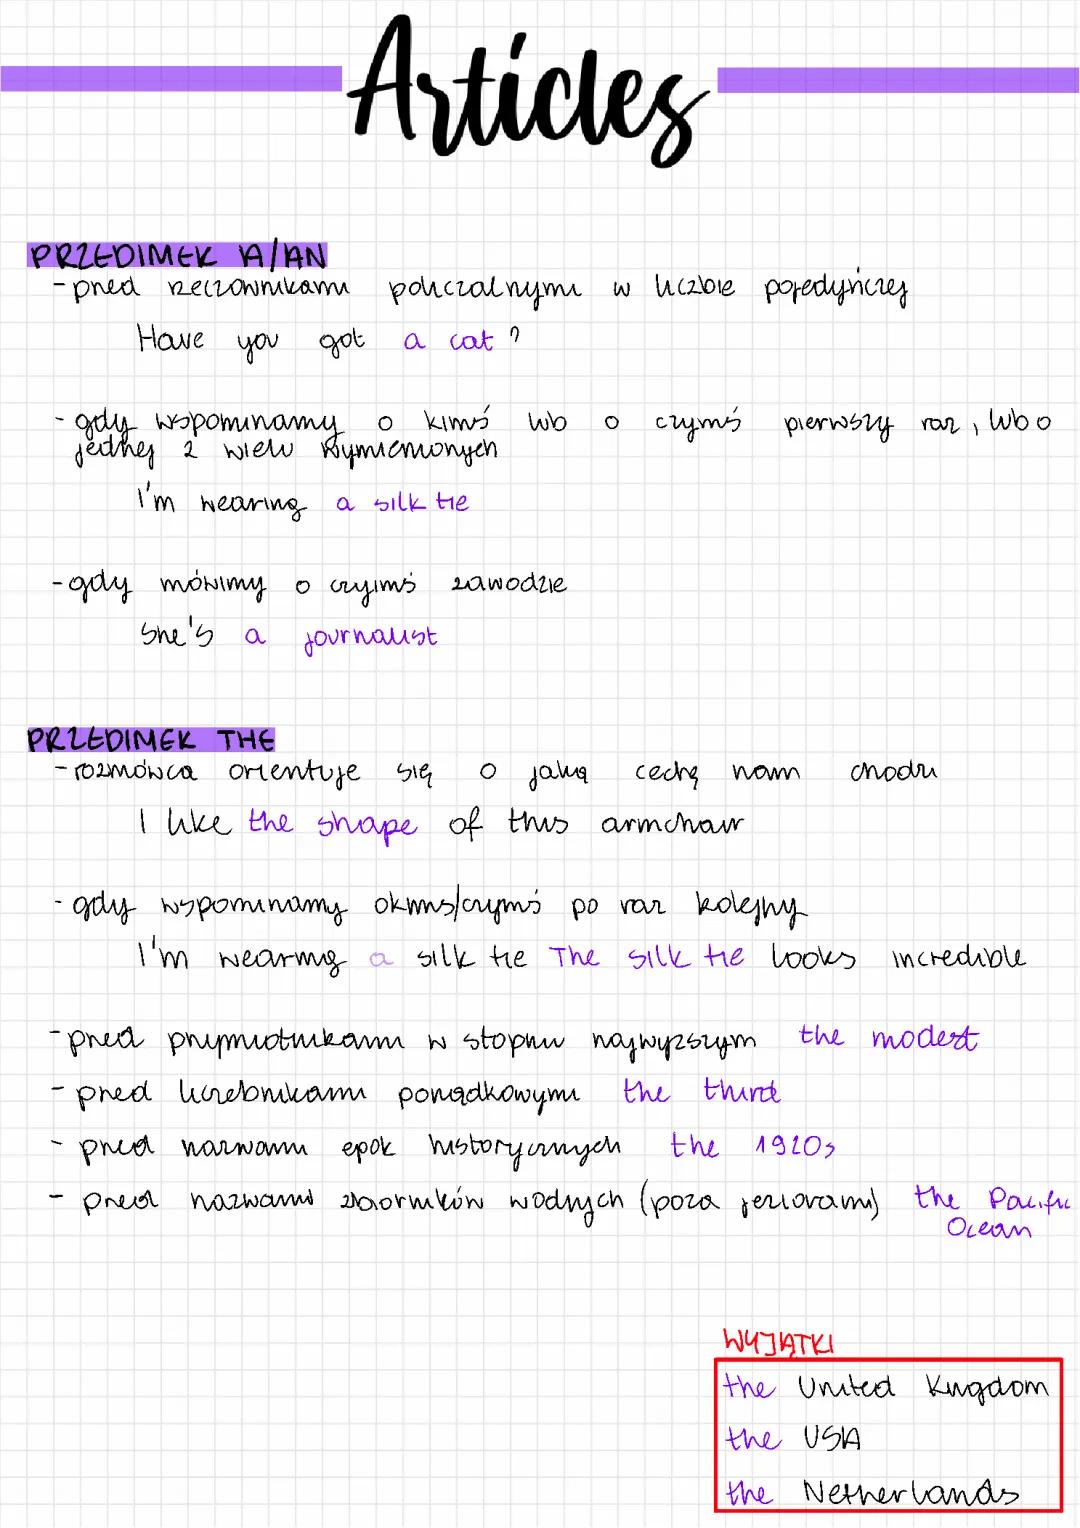 Articles
PRZEDIMEK A/AN
- przed rzeczownikami policzalnymi w liczbie pojedyńczej
Have you got a cat?
- gdy wspominamy o kimś lub o czymś pierwszy raz, lub o
jednej z wielu wymienionych
I'm wearing a silk tie
- gdy mówimy o czyimś zawodzie
She's a journalist
PRZEDIMEK THE
- rozmówca orientuje się o jaką cechę nam chodzi
I like the shape of this armchair
- gdy wspominamy o kimś/czymś po raz kolejny
I'm wearing a silk tie The silk tie looks incredible
- przed przymiotnikami w stopniu najwyższym the modest
- przed liczebnikami porządkowymi the third
- przed nazwami epok historycznych the 1920s
- przed nazwami zbiorników wodnych (poza jeziorami) the Pacific
Ocean
WYJĄTKI
the United Kingdom
the USA
the Netherlands